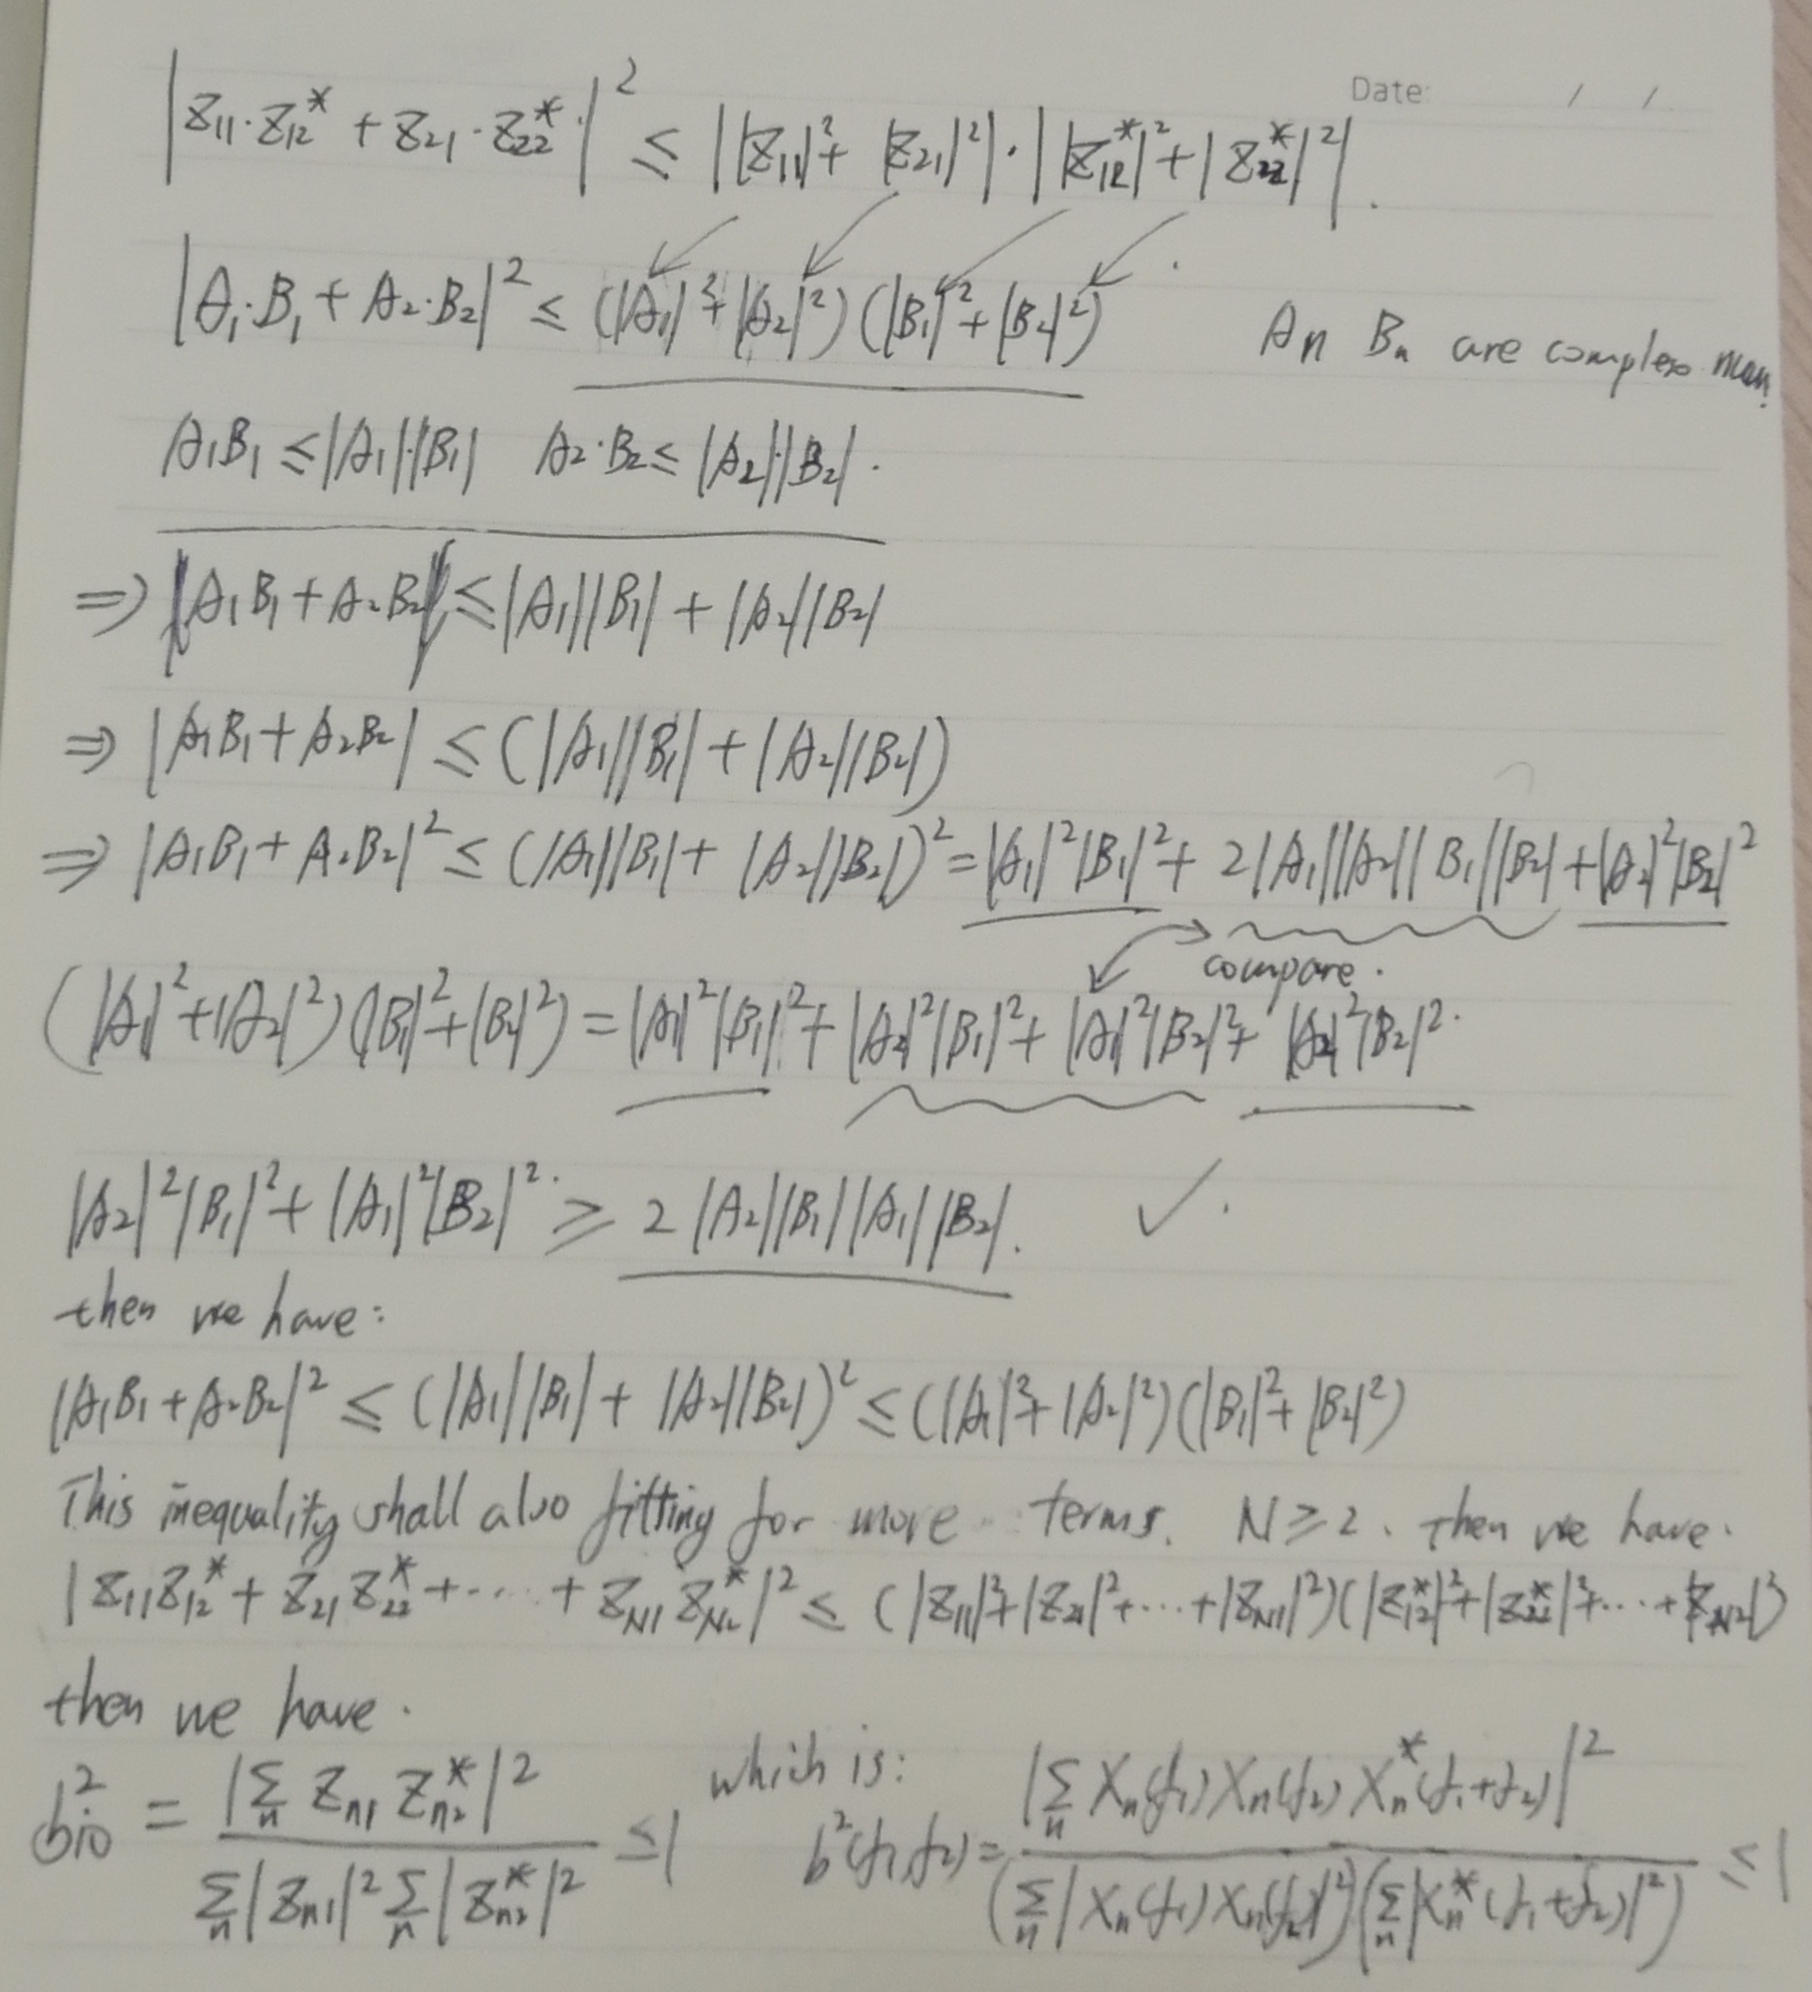 Date: / /
|Z₁₁·Z₁₂* + Z₂₁·Z₂₂*·|² ≤ ||Z₁₁|² + |Z₂₁|²|·||Z₁₂*|² + |Z₂₂*|²|.
|A₁·B₁ + A₂·B₂|² ≤ (|A₁|² + |A₂|²)(|B₁|² + |B₂|²) An Bn are complex
A₁B₁ ≤ |A₁|·|B₁| A₂·B₂ ≤ |A₂|·|B₂|.
⇒ |A₁B₁ + A₂B₂| ≤ |A₁||B₁| + |A₂||B₂|
⇒ |A₁B₁ + A₂B₂| ≤ (|A₁||B₁| + |A₂||B₂|)
⇒ |A₁B₁ + A₂B₂|² ≤ (|A₁||B₁| + |A₂||B₂|)² = |A₁|²|B₁|² + 2|A₁||A₂||B₁||B₂| + |A₂|²|B₂|²
compare.
(|A₁|² + |A₂|²)(|B₁|² + |B₂|²) = |A₁|²|B₁|² + |A₂|²|B₁|² + |A₁|²|B₂|² + |A₂|²|B₂|².
|A₂|²|B₁|² + |A₁|²|B₂|² ≥ 2|A₂||B₁||A₁||B₂|. ✓.
then we have:
|A₁B₁ + A₂B₂|² ≤ (|A₁||B₁| + |A₂||B₂|)² ≤ (|A₁|² + |A₂|²)(|B₁|² + |B₂|²)
This inequality shall also fitting for more terms. N ≥ 2. then we have.
|Z₁₁Z₁₂* + Z₂₁Z₂₂* + ···· + Z_N1 Z_N2*|² ≤ (|Z₁₁|² + |Z₂₁|² + ··· + |Z_N1|²)(|Z₁₂*|² + |Z₂₂*|² + ··· + |Z_N2|²)
then we have.
b²_bio = |∑_n Z_n1 Z_n2*|² / ∑_n|Z_n1|² ∑_n|Z_n2*|² ≤ 1 which is: b²(f₁,f₂) = |∑_n X_n(f₁) X_n(f₂) X_n*(f₁+f₂)|² / (∑_n|X_n(f₁) X_n(f₂)|²)(∑_n|X_n*(f₁+f₂)|²) ≤ 1